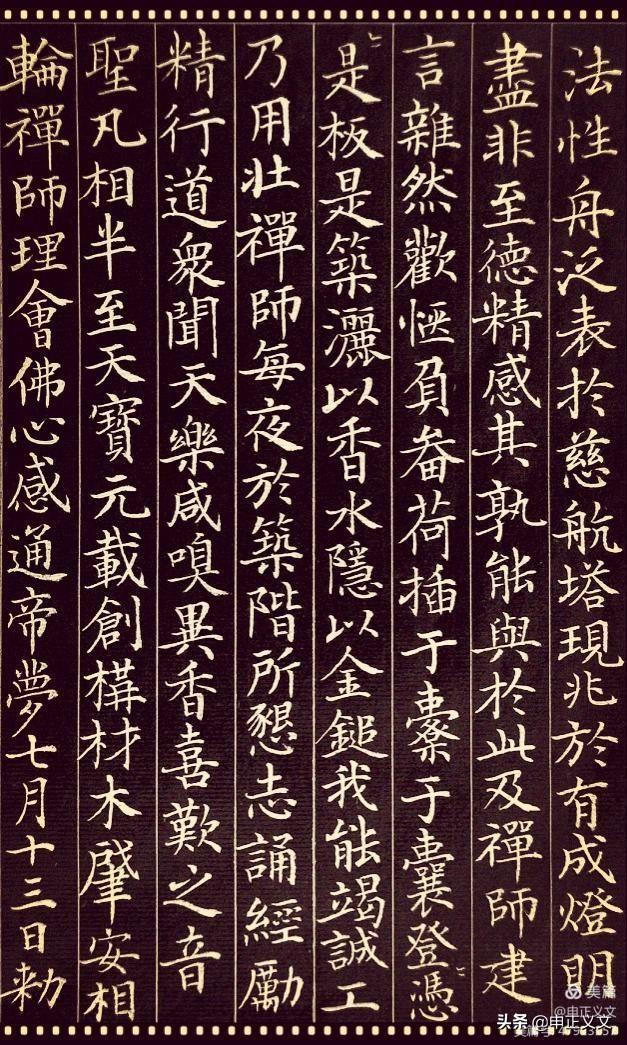 法性舟泛表於慈航塔現兆於有成燈明
盡非至德精感其孰能與於此及禪師建
言雜然歡愜負畚荷插于橐于囊登憑
是板是築灑以香水隱以金鎚我能竭誠工
乃用壯禪師每夜於築階所懇志誦經勵
精行道衆聞天樂咸嗅異香喜歎之音
聖凡相半至天寶元載創構材木肇安相
輪禪師理會佛心感通帝夢七月十三日勑
美篇
@申正义文
头条 @申正义文